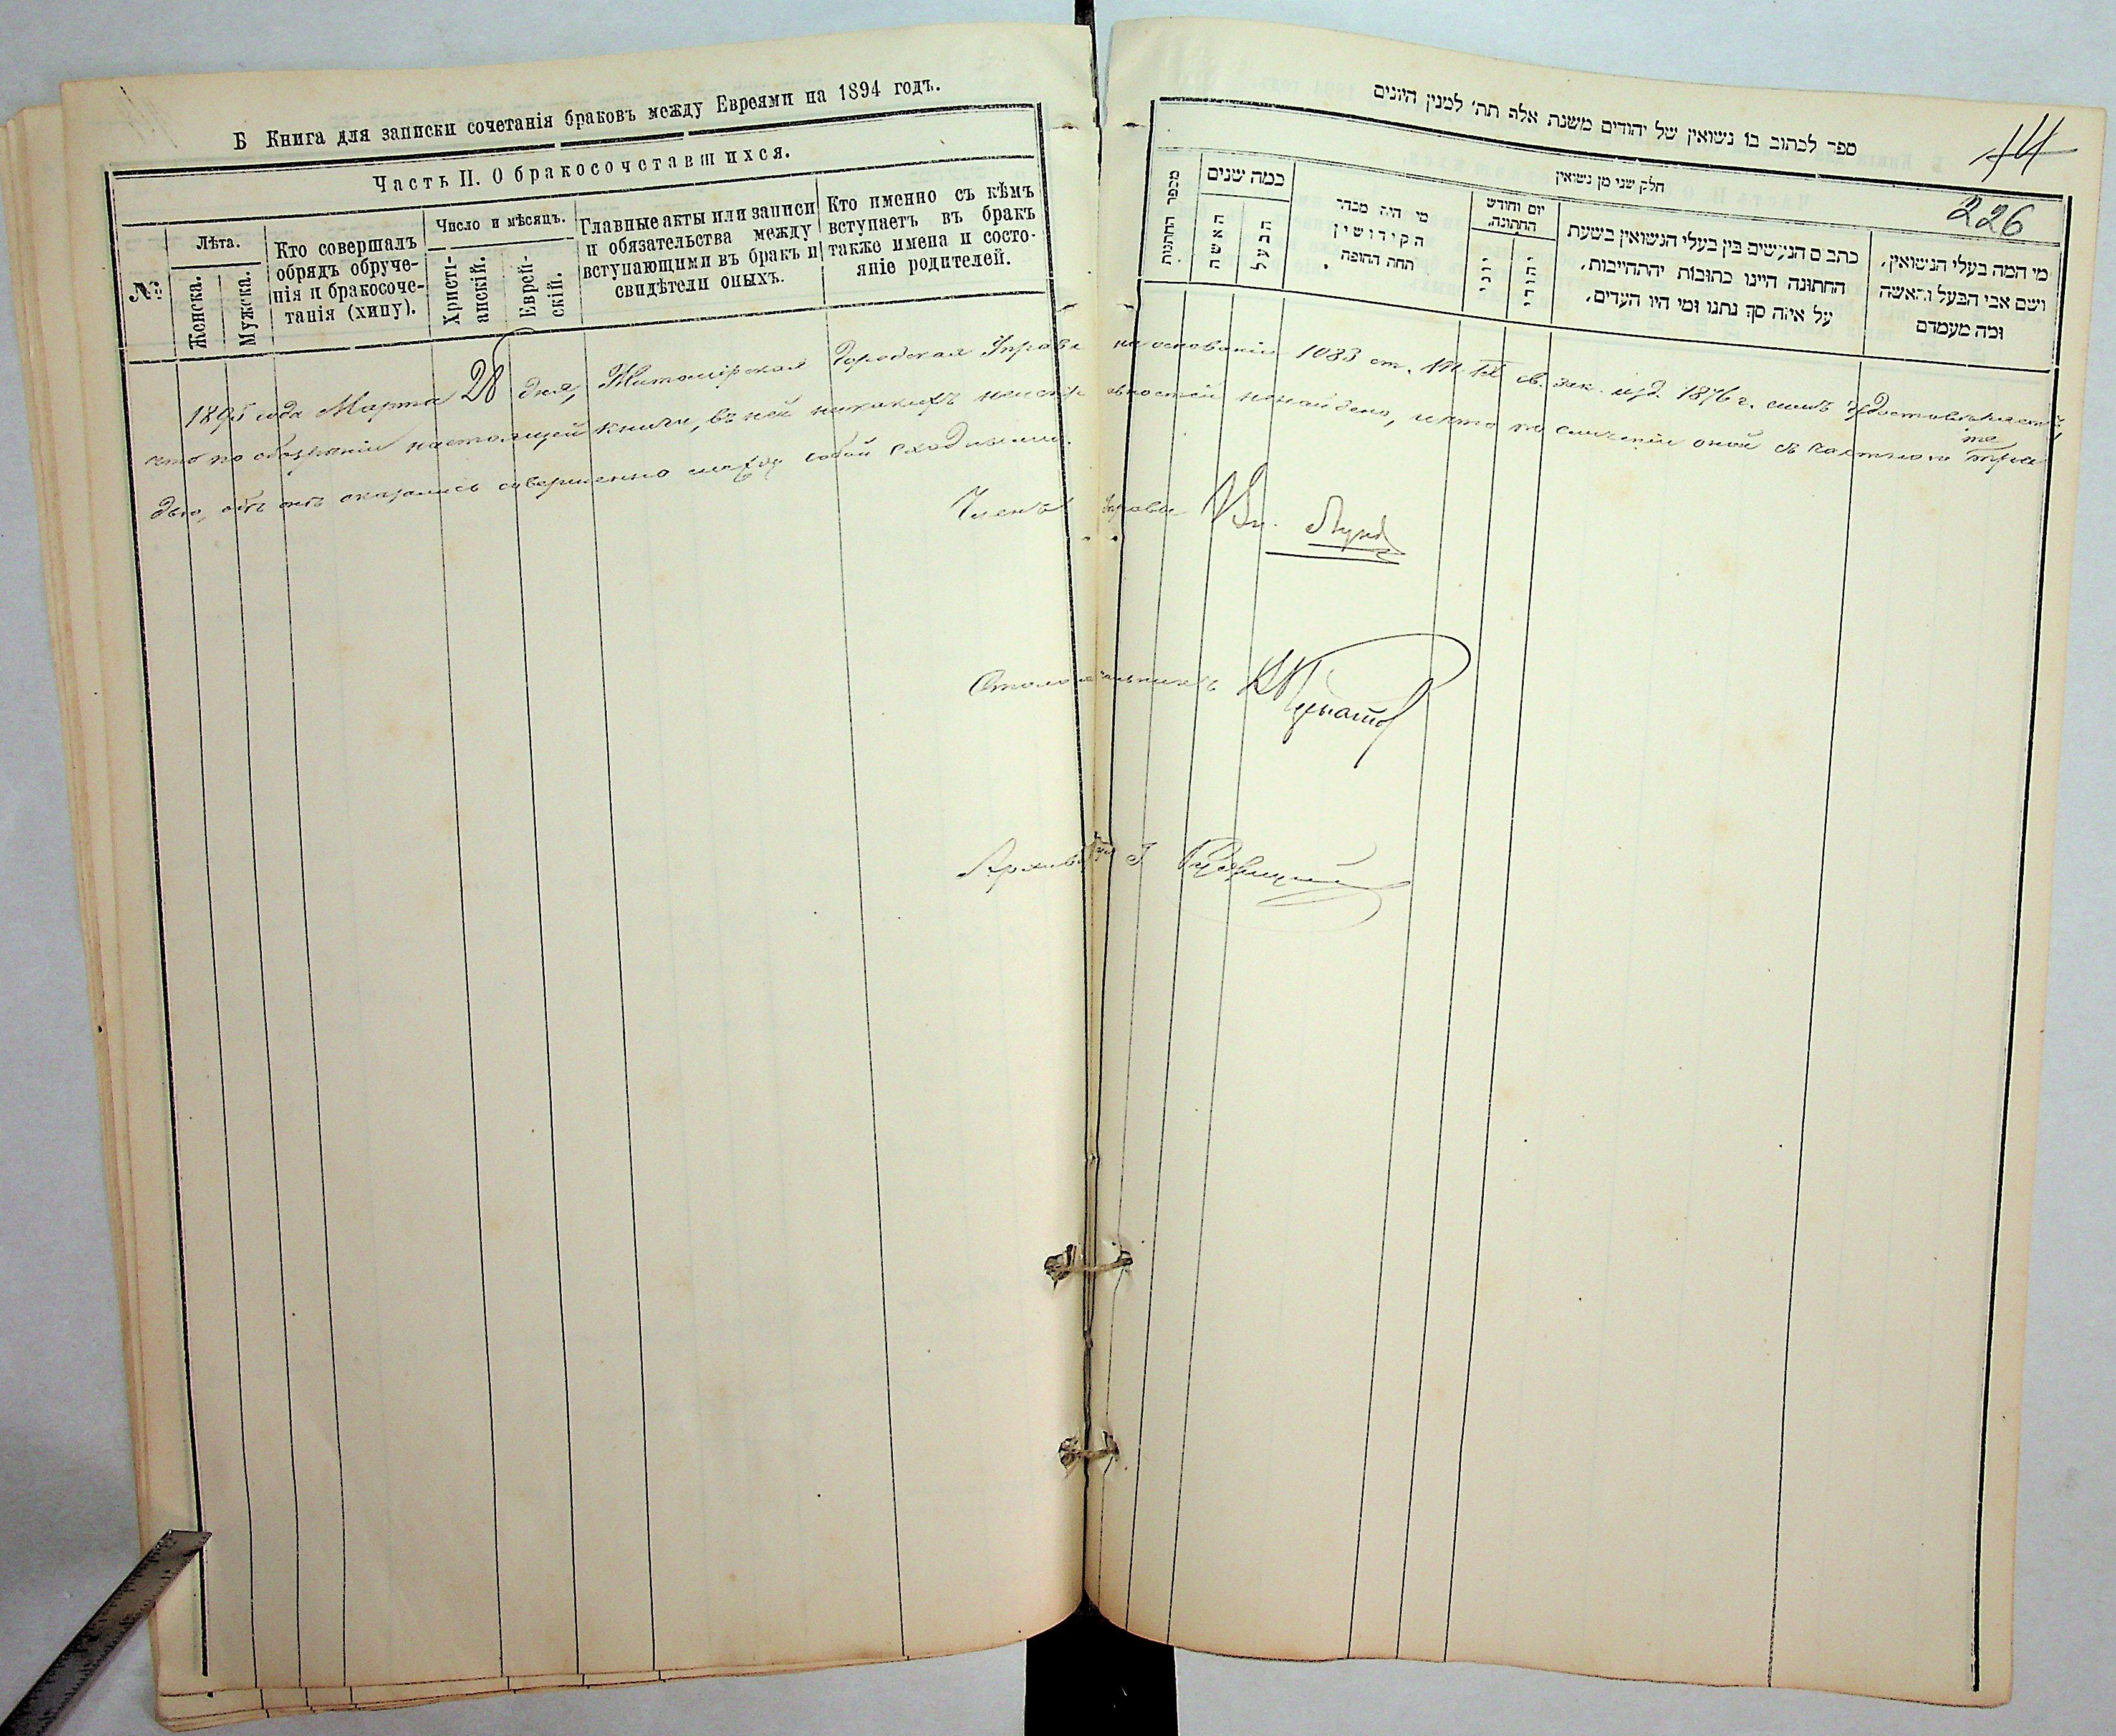 Б Книга для записки сочетанія браковъ между Евреями на 1894 годъ.
Часть II. О бракосочетавшихся.
№
Лѣта.
Женска.
Мужска.
Кто совершалъ
обрядъ обруче-
нія и бракосоче-
танія (хипу).
Число и мѣсяцъ.
Христі-
анскій.
Еврей-
скій.
Главные акты или записи
и обязательства между
вступающими въ бракъ и
свидѣтели оныхъ.
Кто именно съ кѣмъ
вступаетъ въ бракъ
также имена и состо-
яніе родителей.
ספר לכתוב בו נשואין של יהודים משנת אלף תת' למנין היונים
14
226
חלק שני מן נשואין
מספר החתונות
כמה שנים
האשה
הבעל
מי היה מסדר
הקידושין
תחת החופה
יום וחודש
החתונה
יוני
יהודי
כתבים הנעשים בין בעלי הנשואין בשעת
החתונה היינו כתובות והתחייבות,
על איזה סך נתנו ומי היו העדים,
מי המה בעלי הנשואין,
ושם אבי הבעל והאשה
ומה מעמדם
1895 года Марта 28 дня, Житомірская Городская Управа на основаніи 1083 ст. т. IX св. зак. изд. 1876 г. симъ удостовѣряетъ
что по обозрѣніи настоящей книги, въ ней никакихъ неисправностей ненайдено, и что по сличеніи оной съ
онѣ оказались совершенно между собой сходными.
Членъ Управы
Столоначальникъ
Архиваріусъ